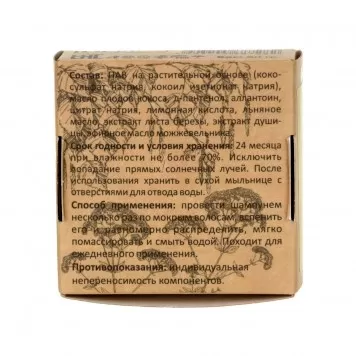 Состав: ПАВ на растительной основе (коко-
сульфат натрия, кокоил изетионат натрия),
масло плодов кокоса, д-пантенол, аллантоин,
цитрат натрия, лимонная кислота, льняное
масло, экстракт листа березы, экстракт души-
цы, эфирное масло можжевельника.
Срок годности и условия хранения: 24 месяца
при влажности не более 70%. Исключить
попадание прямых солнечных лучей. После
использования хранить в сухой мыльнице с
отверстиями для отвода воды.
Способ применения: провести шампунем
несколько раз по мокрым волосам, вспенить
его и равномерно распределить, мягко
помассировать и смыть водой. Походит для
ежедневного применения.
Противопоказания: индивидуальная
непереносимость компонентов.